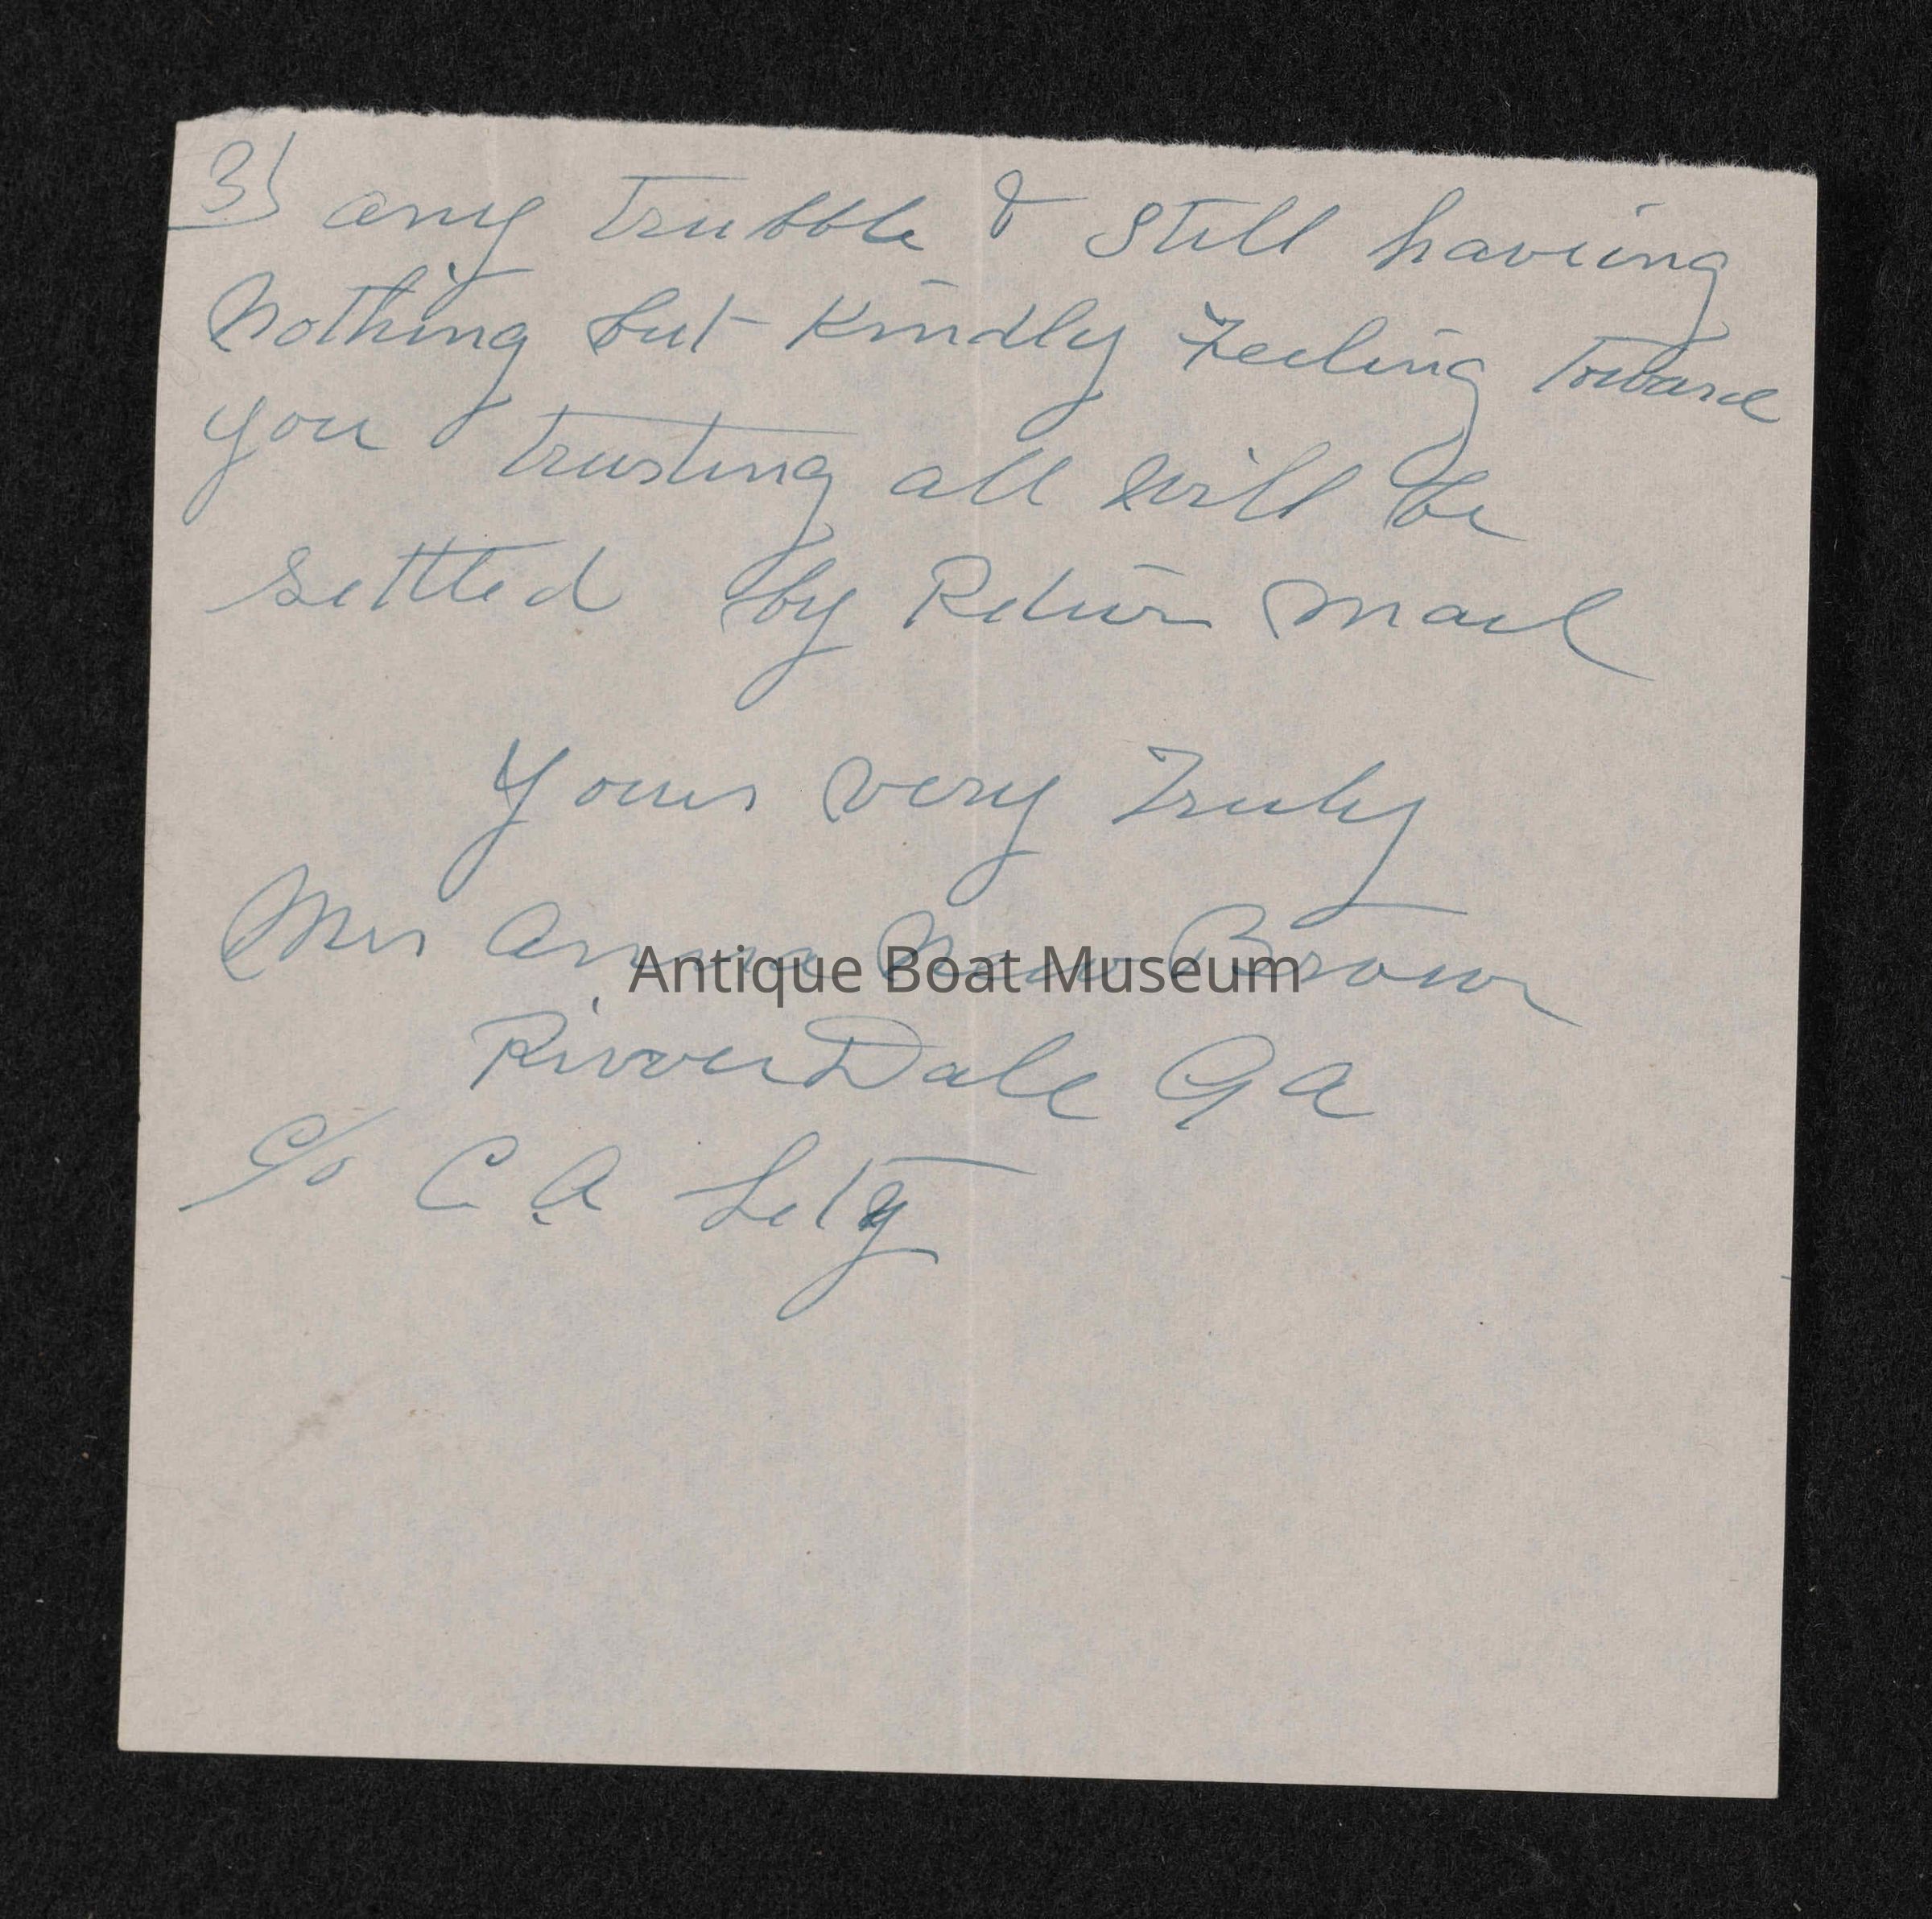 3) any trubble & Still haveing
Nothing but Kindly Feeling Toward
you trusting all will be
settled by Return mail
Yours very Truly
Mrs Annie New Brown
Antique Boat Museum
RiverDale Ga
c/o C. A.